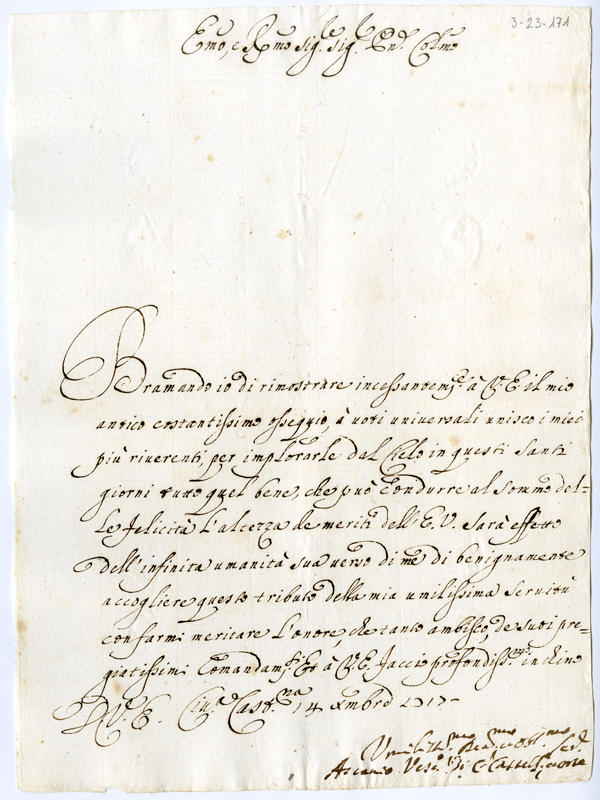 3-23-171
Emo, e Rmo Sig.r Sig.r Pn̄e Colmo
Bramando io di rimostrare incessantem.te à V. E. il mio
antico costantissimo ossequio, à voti universali unisco i miei
più riverenti, per implorarle dal Cielo in questi Santi
giorni tutto quel bene, che può condurre al sommo del=
le felicità l'altezza de meriti dell'E. V. Sarà effetto
dell'infinita umanità sua verso di me di benignamente
accogliere questo tributo della mia umilissima servitù
con farmi meritare l'onore, che tanto ambisco, de suoi pre=
giatissimi Comandam.ti Et à V. E. faccio profondiss.mo inchino
D. V. E. Civ.a Cast.na 14 Xmbre 1717
Umiliss.mo Dev.mo Obl.mo Ser.e
Ascanio Vesc.o di C. Castell.